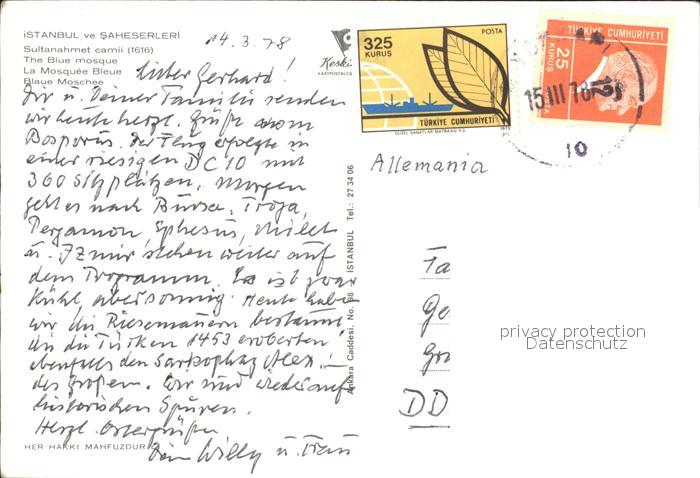 İSTANBUL ve ŞAHESERLERİ
Sultanahmet camii (1616)
The Blue mosque
La Mosquée Bleue
Blaue Moschee
14.3.78
Lieber Gerhard!
Dir u. Deiner Familie senden
wir heute herzl. Grüße vom
Bosporus. Der Flug erfolgte in
einer riesigen DC 10 mit
360 Sitzplätzen. Morgen
geht es nach Bursa. Troja,
Pergamon, Ephesus, Milet
u. Izmir stehen weiter auf
dem Programm. Es ist zwar
kühl, aber sonnig. Heute haben
wir die Riesenmauern bestaunt
die die Türken 1453 eroberten,
ebenfalls den Sarkophag Alex.
des Großen. Wir sind wieder auf
historischen Spuren.
Herzl. Ostergrüße
Dein Willy u. Frau
HER HAKKI MAHFUZDUR
Keskin
KARTPOSTALCILIK
Ankara Caddesi, No. 98 İSTANBUL Tel.: 27 34 06
325
KURUŞ
POSTA
TÜRKİYE CUMHURİYETİ
GÜZEL SANATLAR MATBAASI A.Ş.
1973
TÜRKİYE CUMHURİYETİ
25
KURUŞ
15 III 78
12
10
Allemania
Fa
Ge
Gr
DD
privacy protection
Datenschutz